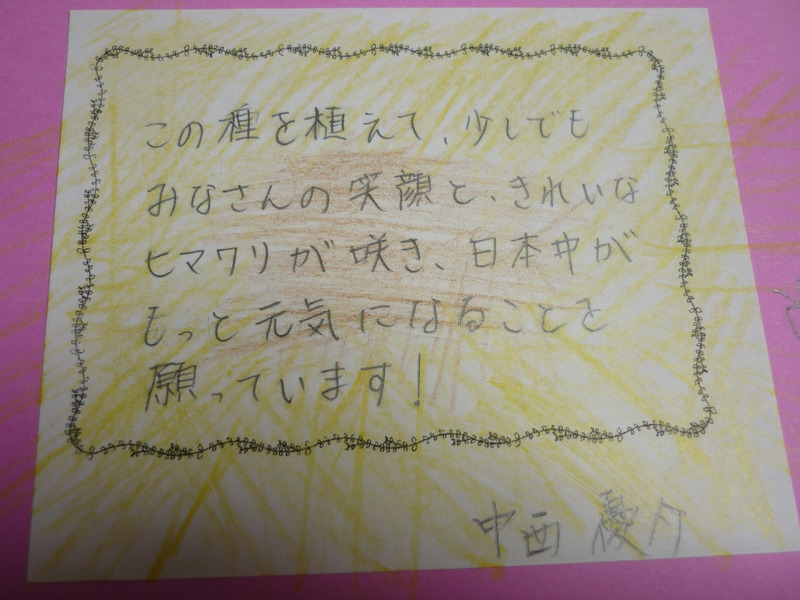 この種を植えて、少しでも
みなさんの笑顔と、きれいな
ヒマワリが咲き、日本中が
もっと元気になることを
願っています!
中西 優介